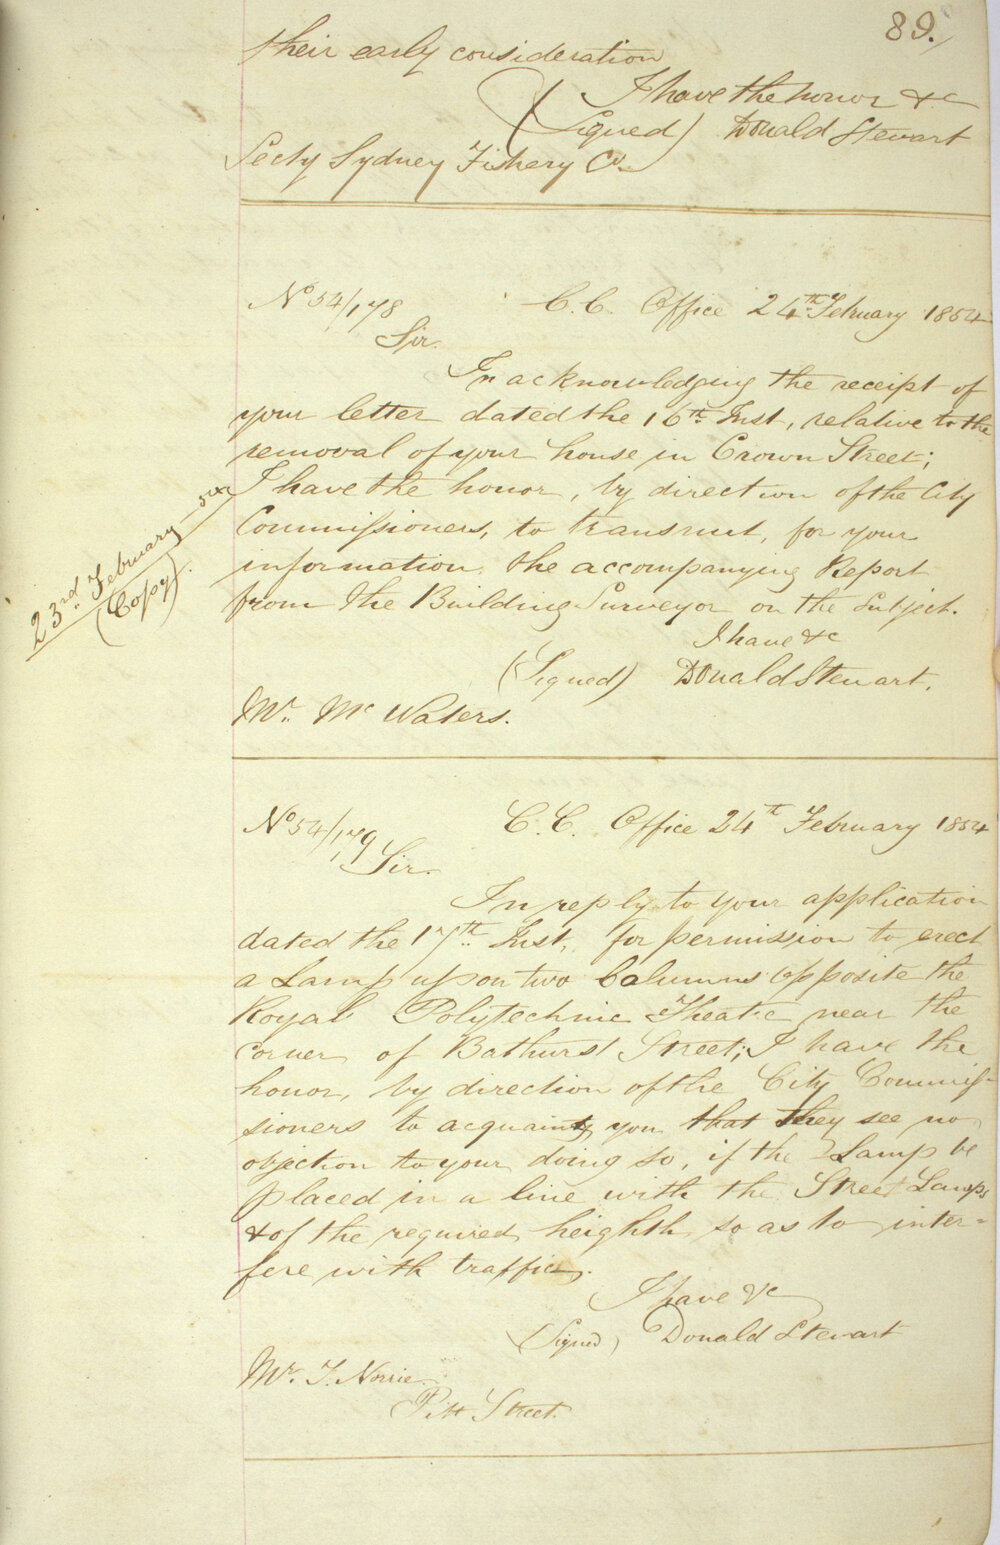 89.
their early consideration
I have the honor &c
(Signed) Donald Stewart
Secty Sydney Fishery Co.
No 54/178 C. C. Office 24th February 1854
Sir.
In acknowledging the receipt of
your letter dated the 16th Inst, relative to the
removal of your house in Crown Street;
I have the honor, by direction of the City
Commissioners, to transmit, for your
information, the accompanying Report
from the Building Surveyor on the subject.
23rd. February 54
(Copy).
I have &c
(Signed) Donald Stewart.
Mr. Mc Waters.
No 54/179 C. C. Office 24th February 1854
Sir.
In reply to your application
dated the 17th Inst, for permission to erect
a Lamp upon two Columns opposite the
Royal Polytechnic Theatre near the
corner of Bathurst Street; I have the
honor, by direction of the City Commis-
sioners to acquaint you that they see no
objection to your doing so, if the Lamp be
placed in a line with the Street Lamps
& of the required heighth so as to inter=
fere with traffic.
I have &c
(Signed) Donald Stewart
Mr. T. Norrie.
Pitt Street.